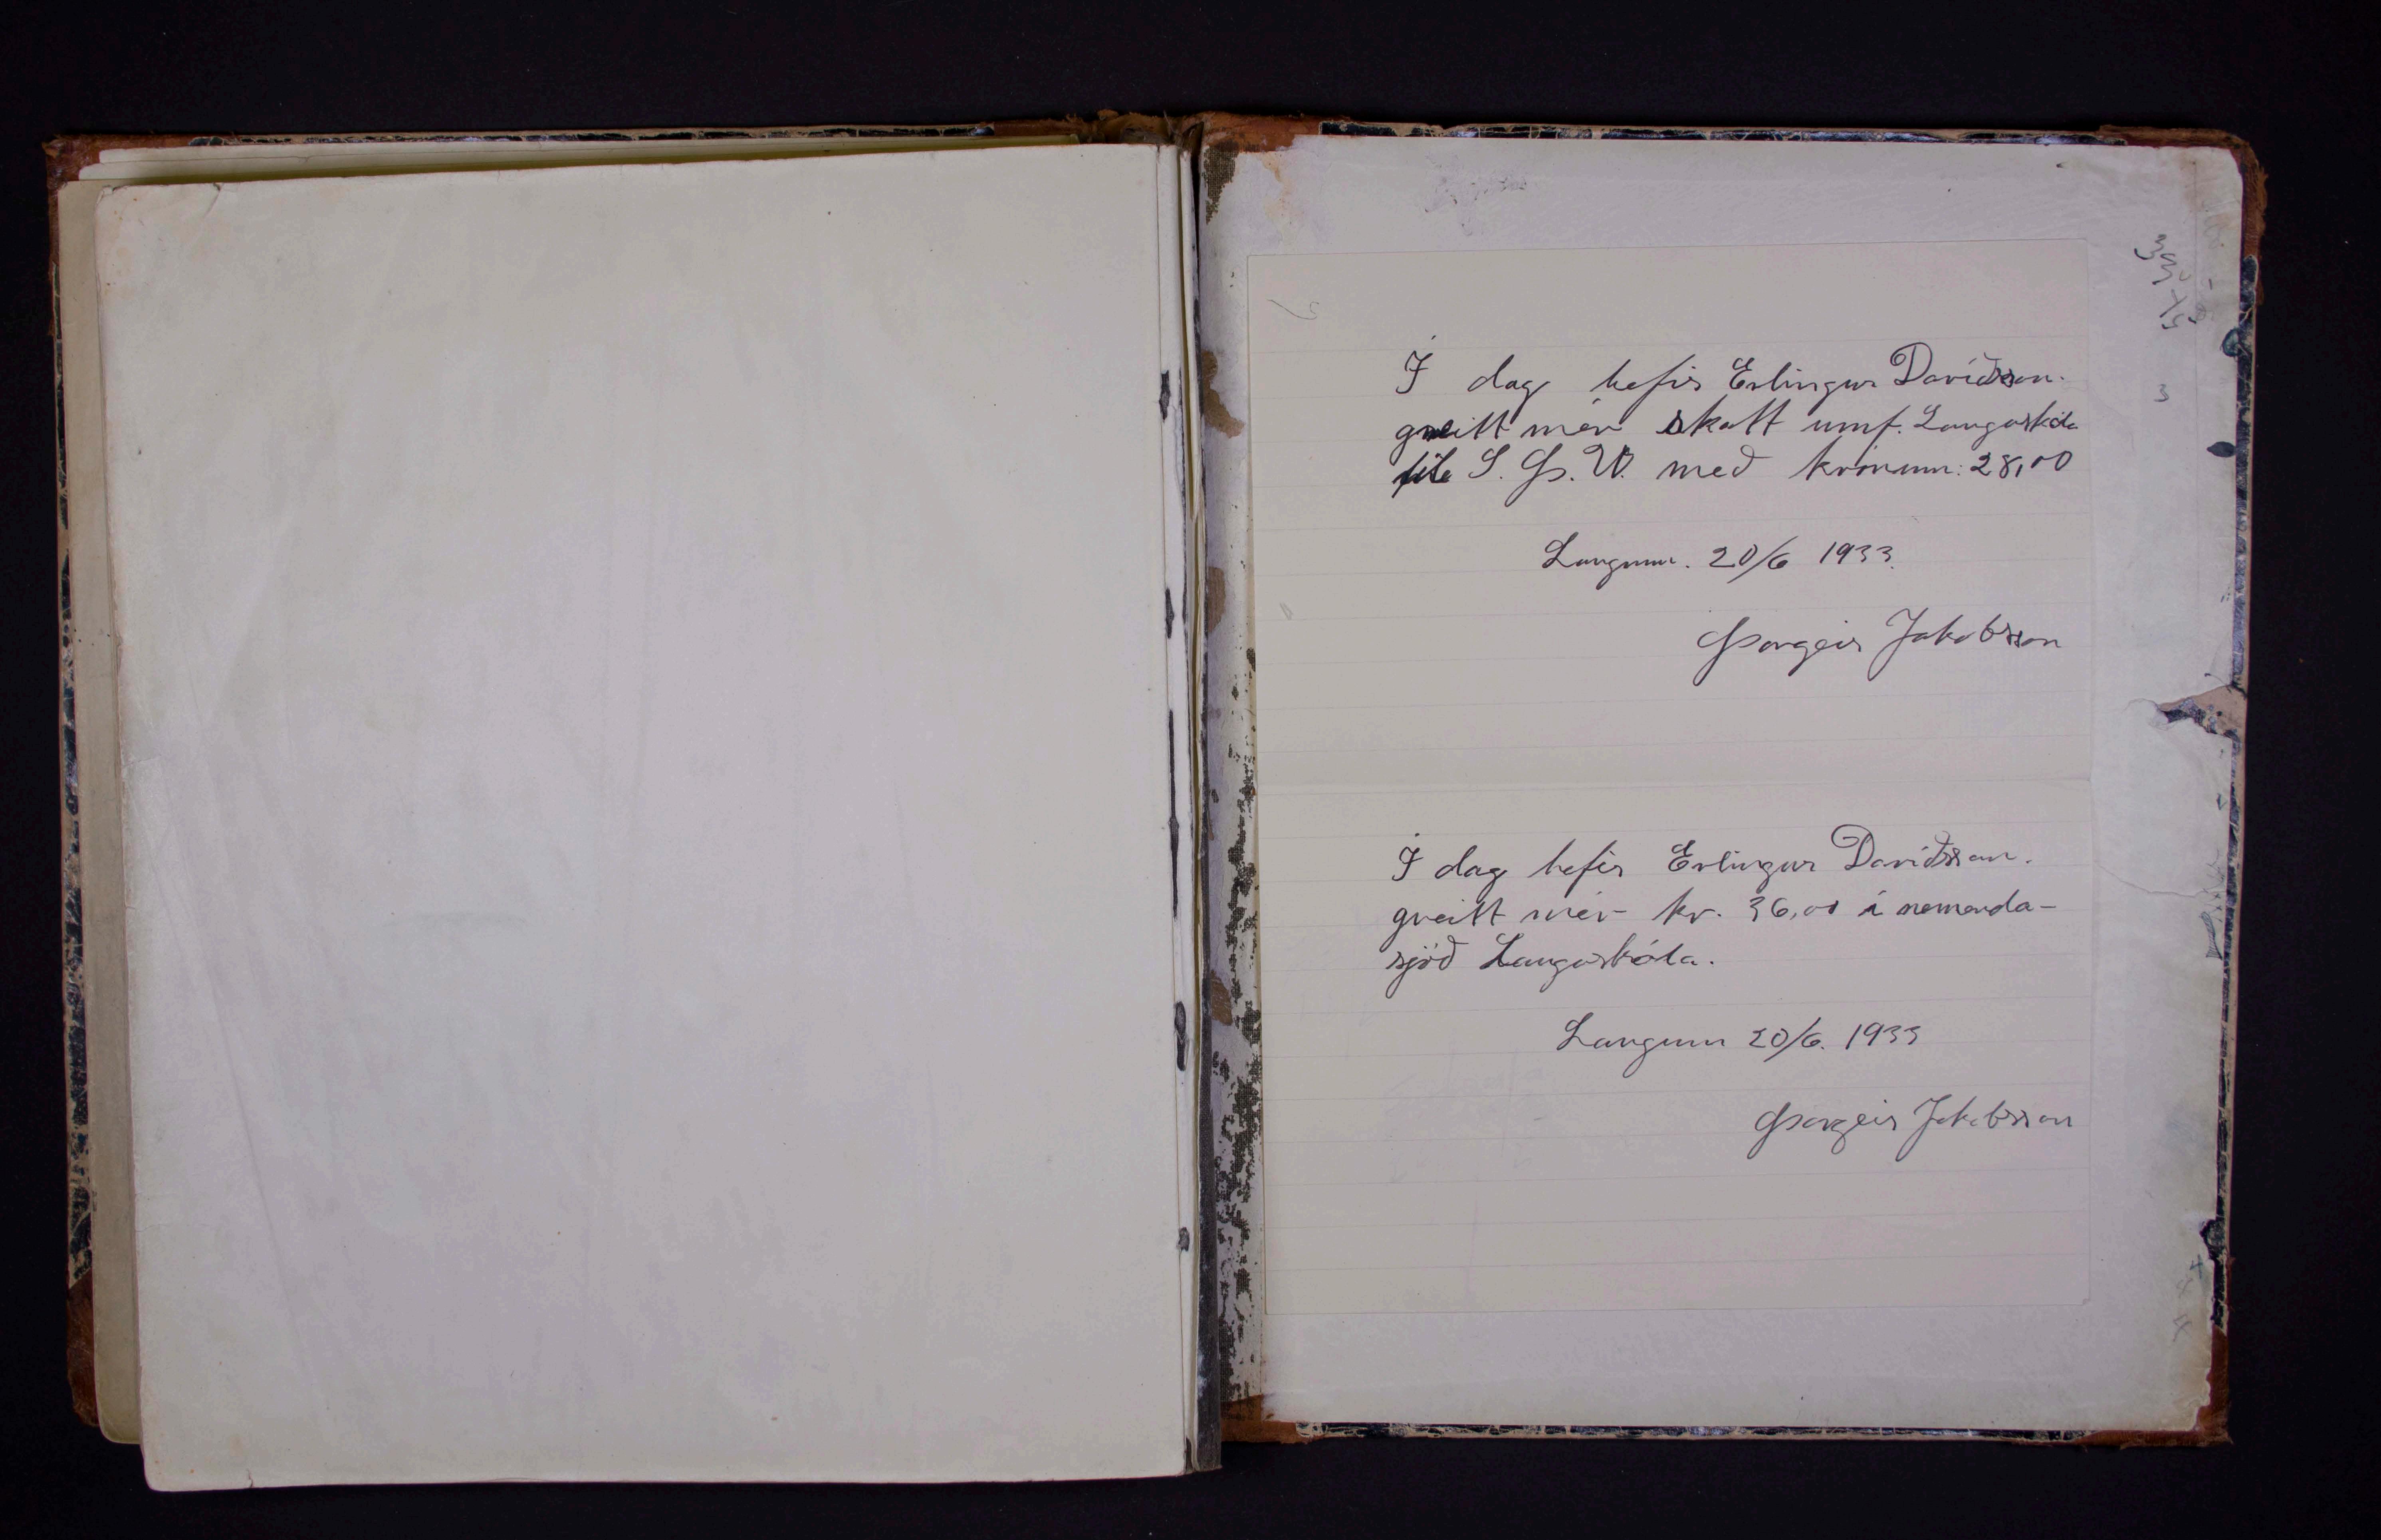 Í dag hefir Erlingur Davíðsson.
greitt mér skatt umf. Laugaskóla
til S. Þ. U. með krónum: 28,00
Laugum. 20/6 1933.
Þorgeir Jakobsson
Í dag hefir Erlingur Davíðsson.
greitt mér kr. 36,00 í nemenda-
sjóð Laugaskóla.
Laugum 20/6. 1933
Þorgeir Jakobsson